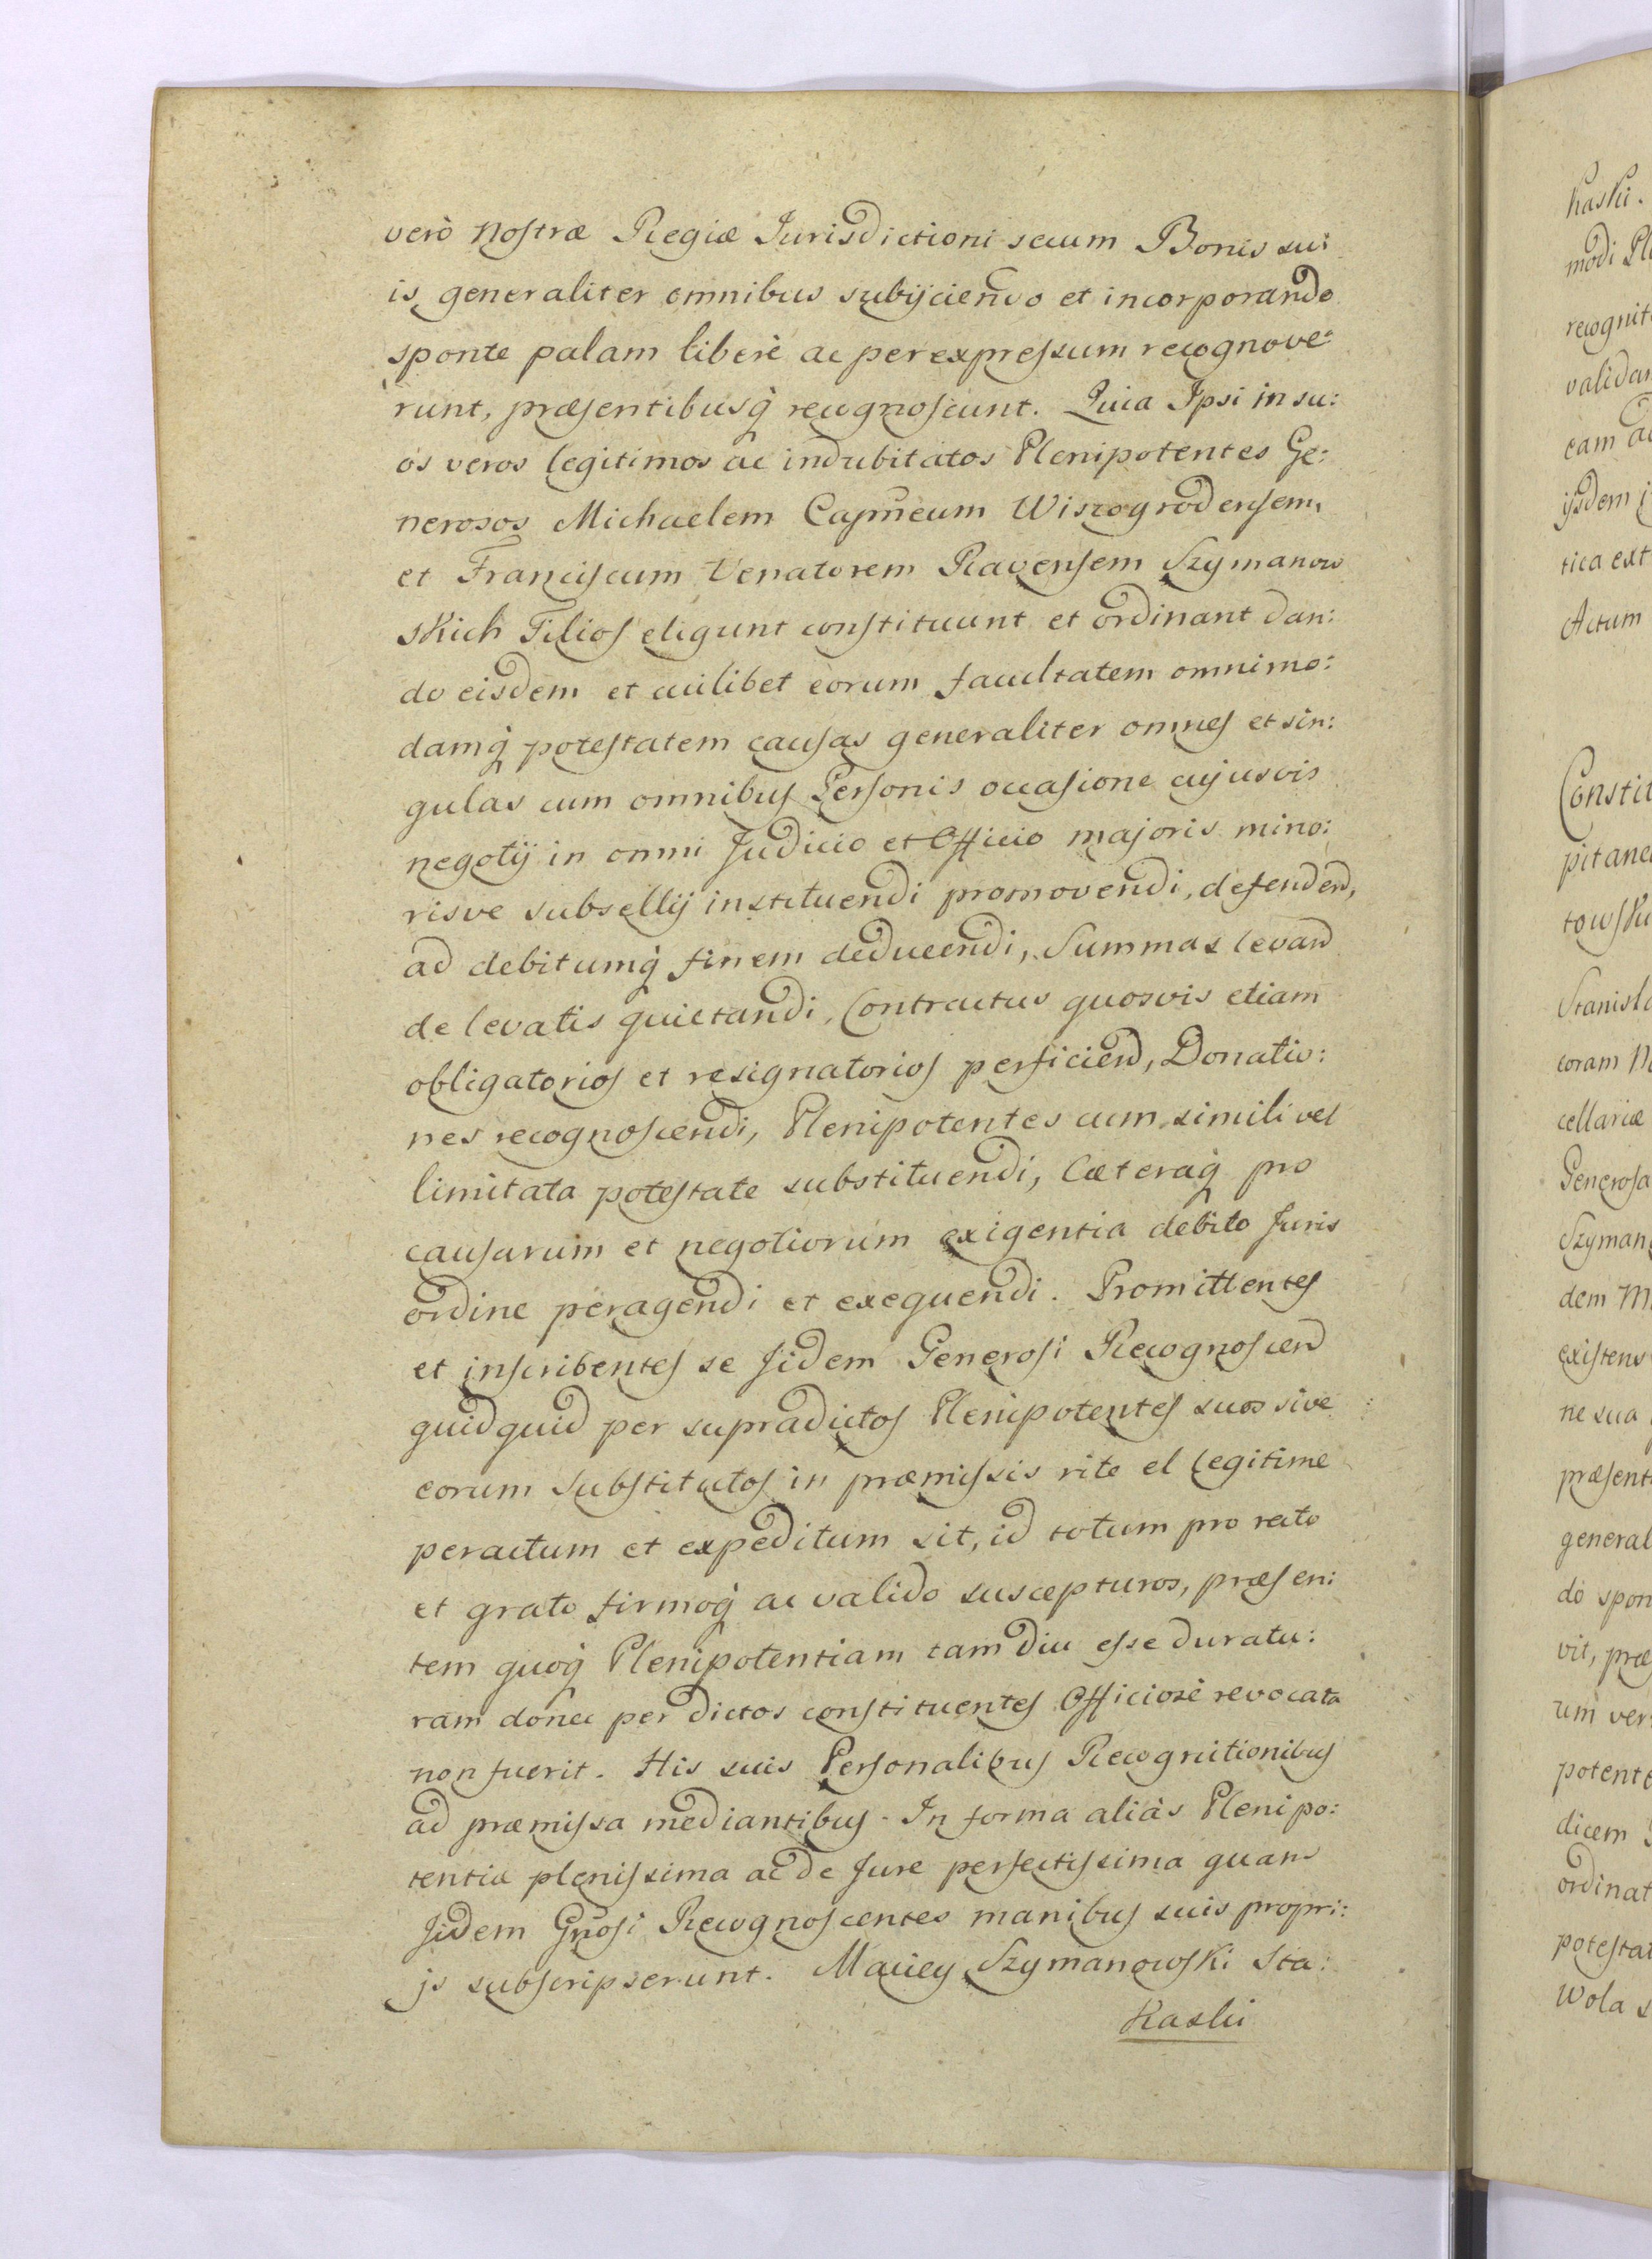 verò Nostræ Regiæ Jurisdictioni secum Bonis su:
is generaliter omnibus subijciendo et incorporando
sponte palam liberè ac per expressum recognove:
runt, præsentibusq́ recognoscunt. Quia Ipsi in su:
os veros legitimos ac indubitatos Plenipotentes Ge:
nerosos Michaelem Capn̄eum Wiszogrodensem,
et Franciscum Venatorem Ravensem Szymanow
skich Filios eligunt constituunt et ordinant dan:
do eisdem et cuilibet eorum facultatem omnimo:
damq́ potestatem causas generaliter omnes et sin:
gulas cum omnibus Personis occasione cujusvis
negotij in omni Judicio et Officio majoris mino:
risve subsellij instituendi promovendi, defendend,
ad debitumq́ finem deducendi, Summas levand
de levatis quietandi, Contractus quosvis etiam
obligatorios et resignatorios perficiend, Donatio:
nes recognoscendi, Plenipotentes cum simili vel
limitata potestate substituendi, Cæteraq́ pro
causarum et negotiorum exigentia debito Juris
ordine peragendi et exequendi. Promittentes
et inscribentes se Jidem Generosi Recognoscend
quidquid per supradictos Plenipotentes suos sive
eorum Substitutos in præmissis rite et legitime
peractum et expeditum sit, id totum pro rato
et grato firmoq́ ac valido suscepturos, præsen:
tem quoq́ Plenipotentiam tam diu esse duratu:
ram donec per dictos constituentes Officiosè revocata
non fuerit. His suis Personalibus Recognitionibus
ad præmissa mediantibus. In forma aliàs Plenipo:
tentiæ plenissima ac de Jure perfectissima quam
Jidem Gn̄osi Recognoscentes manibus suis propri:
js subscripserunt. Maciey Szymanowski Sta:
kaski
kaski.
modi Pl
recognit
validan
eam ac
ijsdem i
tica ext
Actum
Constit
pitane
towski
Stanisla
coram N
cellariæ
Generosa
Szyman
dem M
existens
ne sua
præsent
general
do spon
vit, præ
um ver
potente
dicem
ordinat
potestat
Wola s